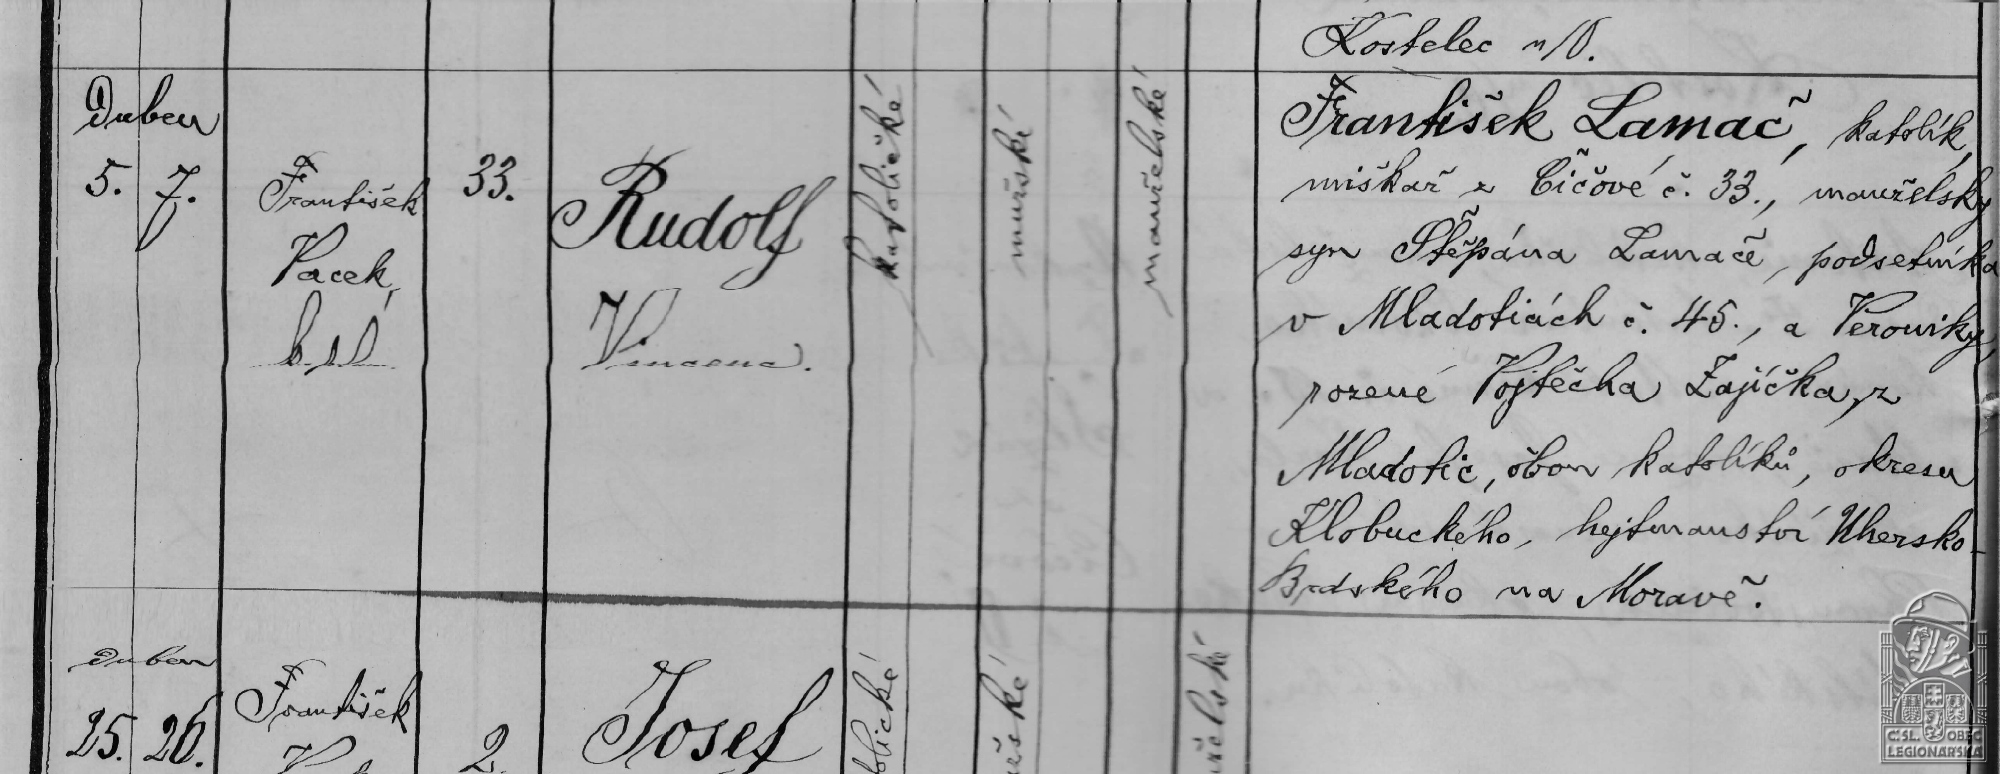 Kostelec n/O.
Duben
5. 7.
František
Vacek,
33.
Rudolf
Vincenc.
katolické
mužské
manželské
František Lamač, katolík,
miškař z Číčové č. 33., manželský
syn Štěpána Lamače, podsedníka
v Mladoticách č. 45., a Veroniky,
rozené Vojtěcha Zajíčka, z
Mladotic, obou katolíků, okresu
Klobuckého, hejtmanství Uhersko-
Brodského na Moravě.
Duben
25. 26.
František
2.
Josef
ČSL. OBEC
LEGIONÁŘSKÁ